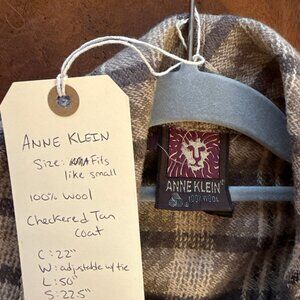 ANNE KLEIN
Size: Fits
like small
100% Wool
Checkered Tan
coat
C: 22"
W: adjustable w/tie
L: 50"
S: 22.5"
ANNE KLEIN
100% WOOL